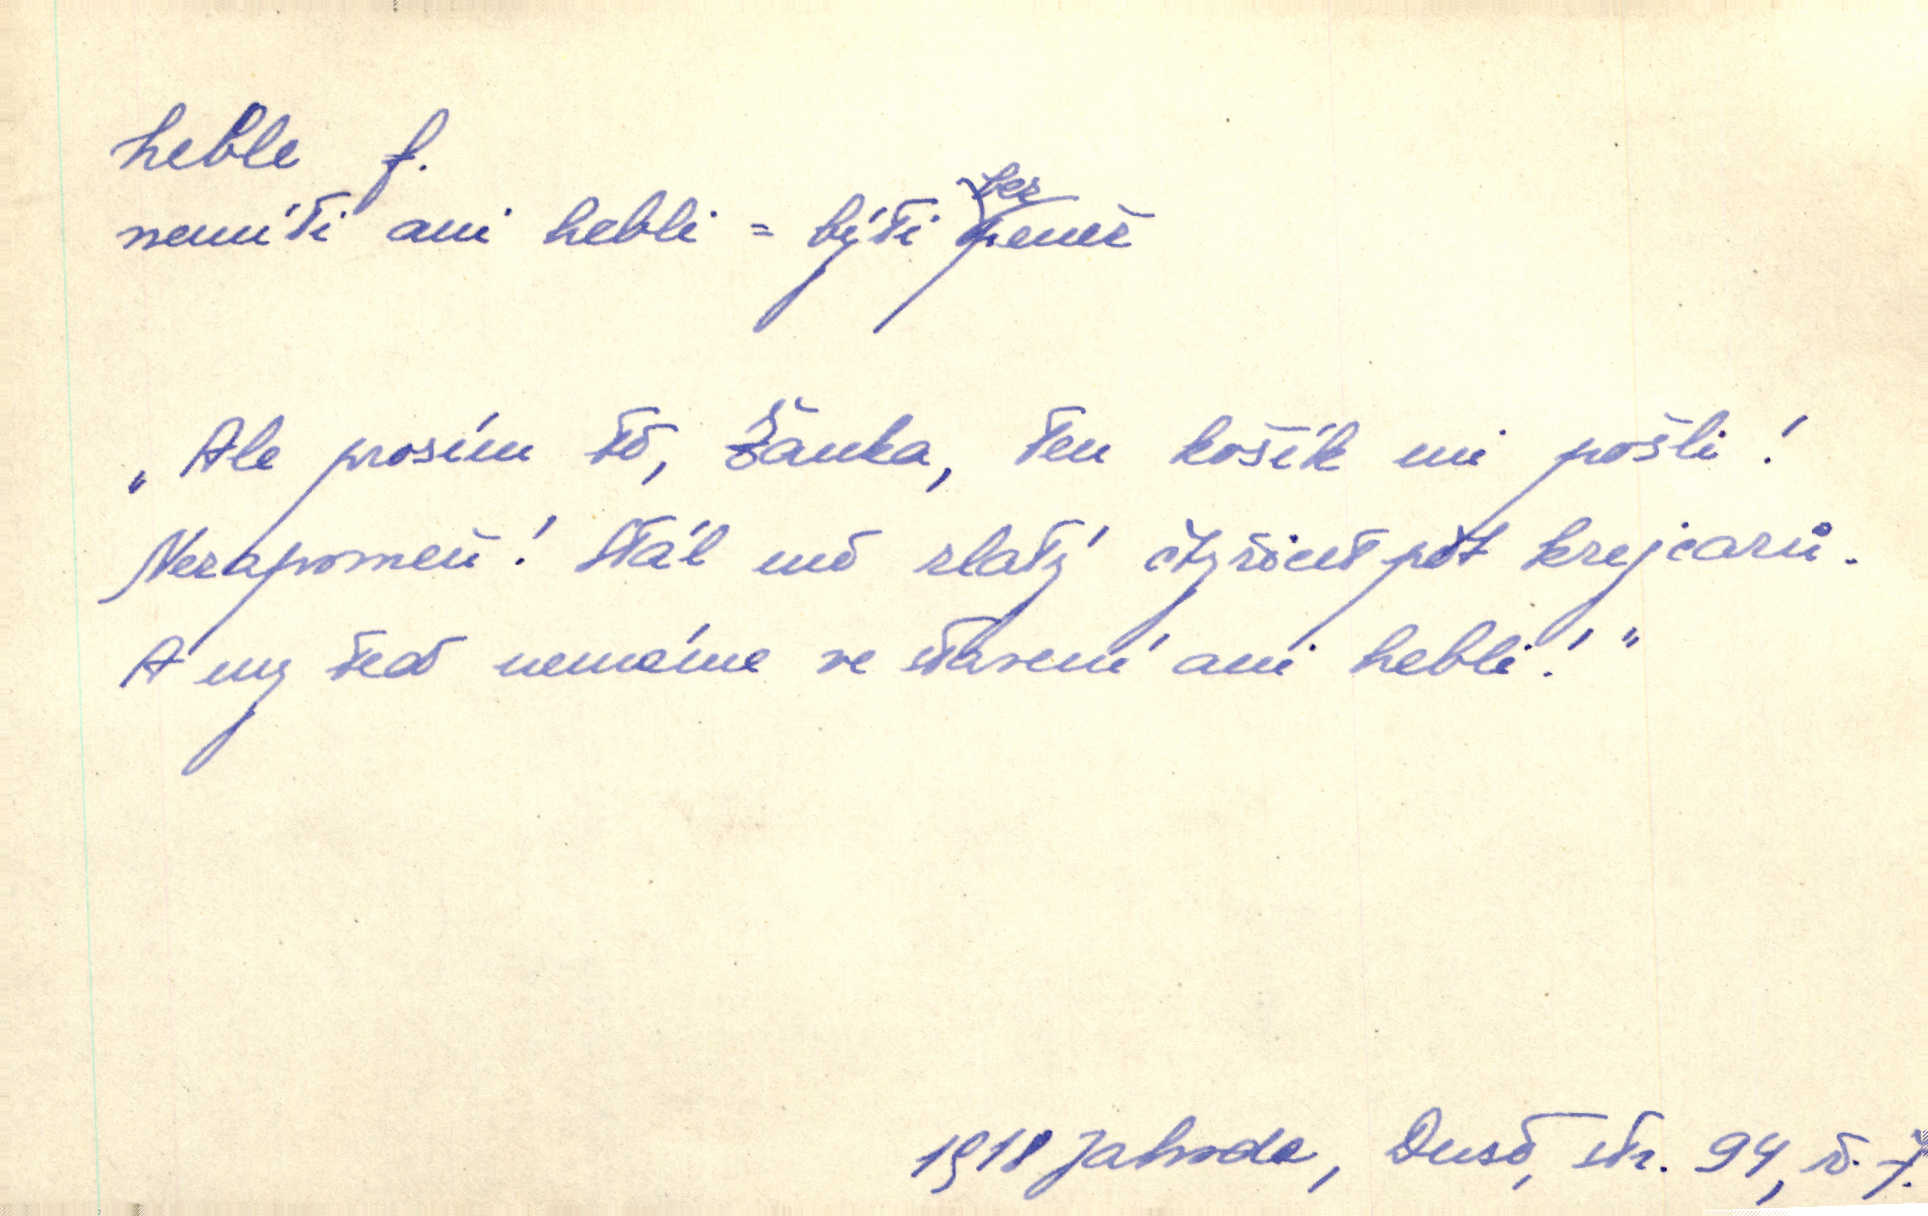 heble f.
nemíti ani hebli = býti bez peněz
„Ale prosím tě, Žanka, ten košík mi pošli!
Nezapomeň! Stál mě zlatý čtyřicet pět krejcarů.
A my teď nemáme ve stavení ani hebli!“
1918 Jahoda, Duše, str. 94, ř. 7.